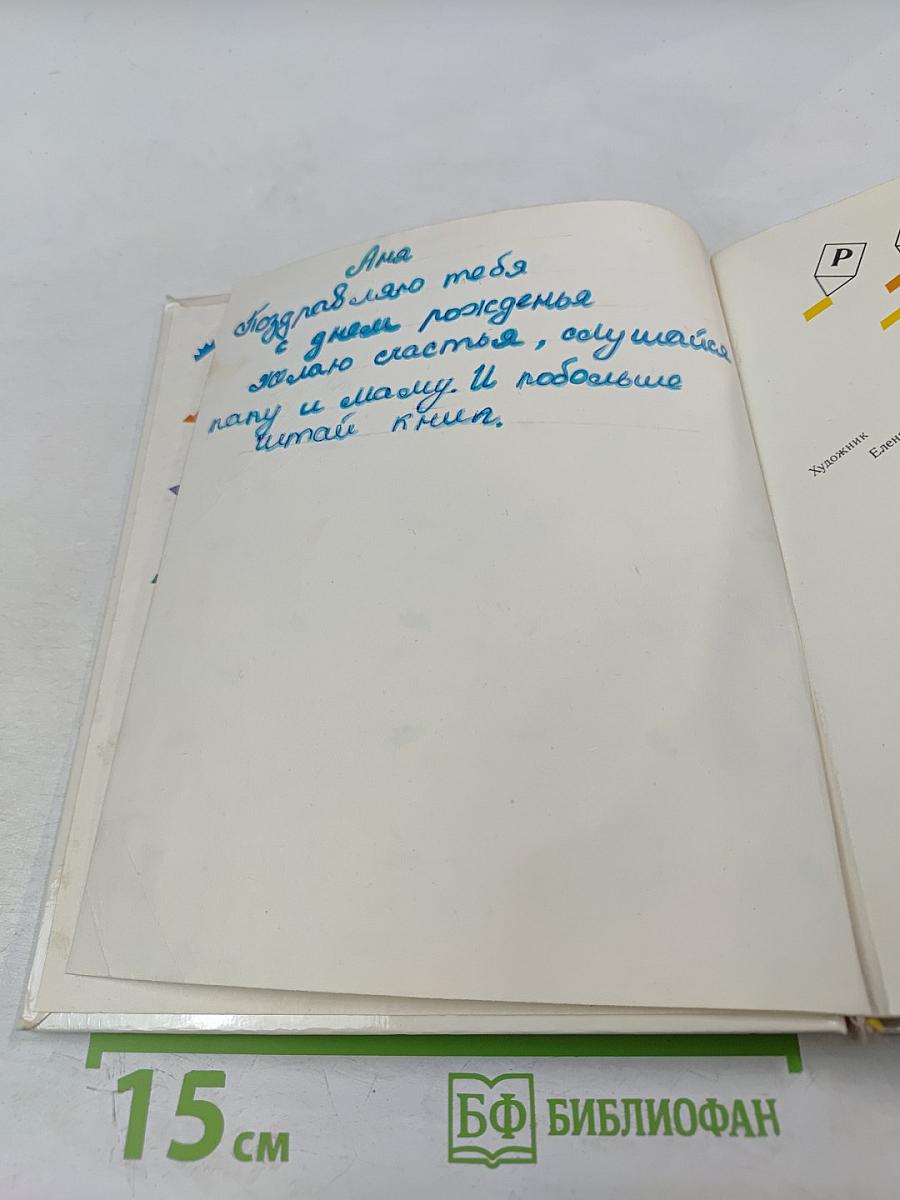 Аня
Поздравляю тебя
с днем рожденья
желаю счастья, слушайся
папу и маму. И побольше
читай книг.
Р
Художник
Елена
15 см
БФ БИБЛИОФАН